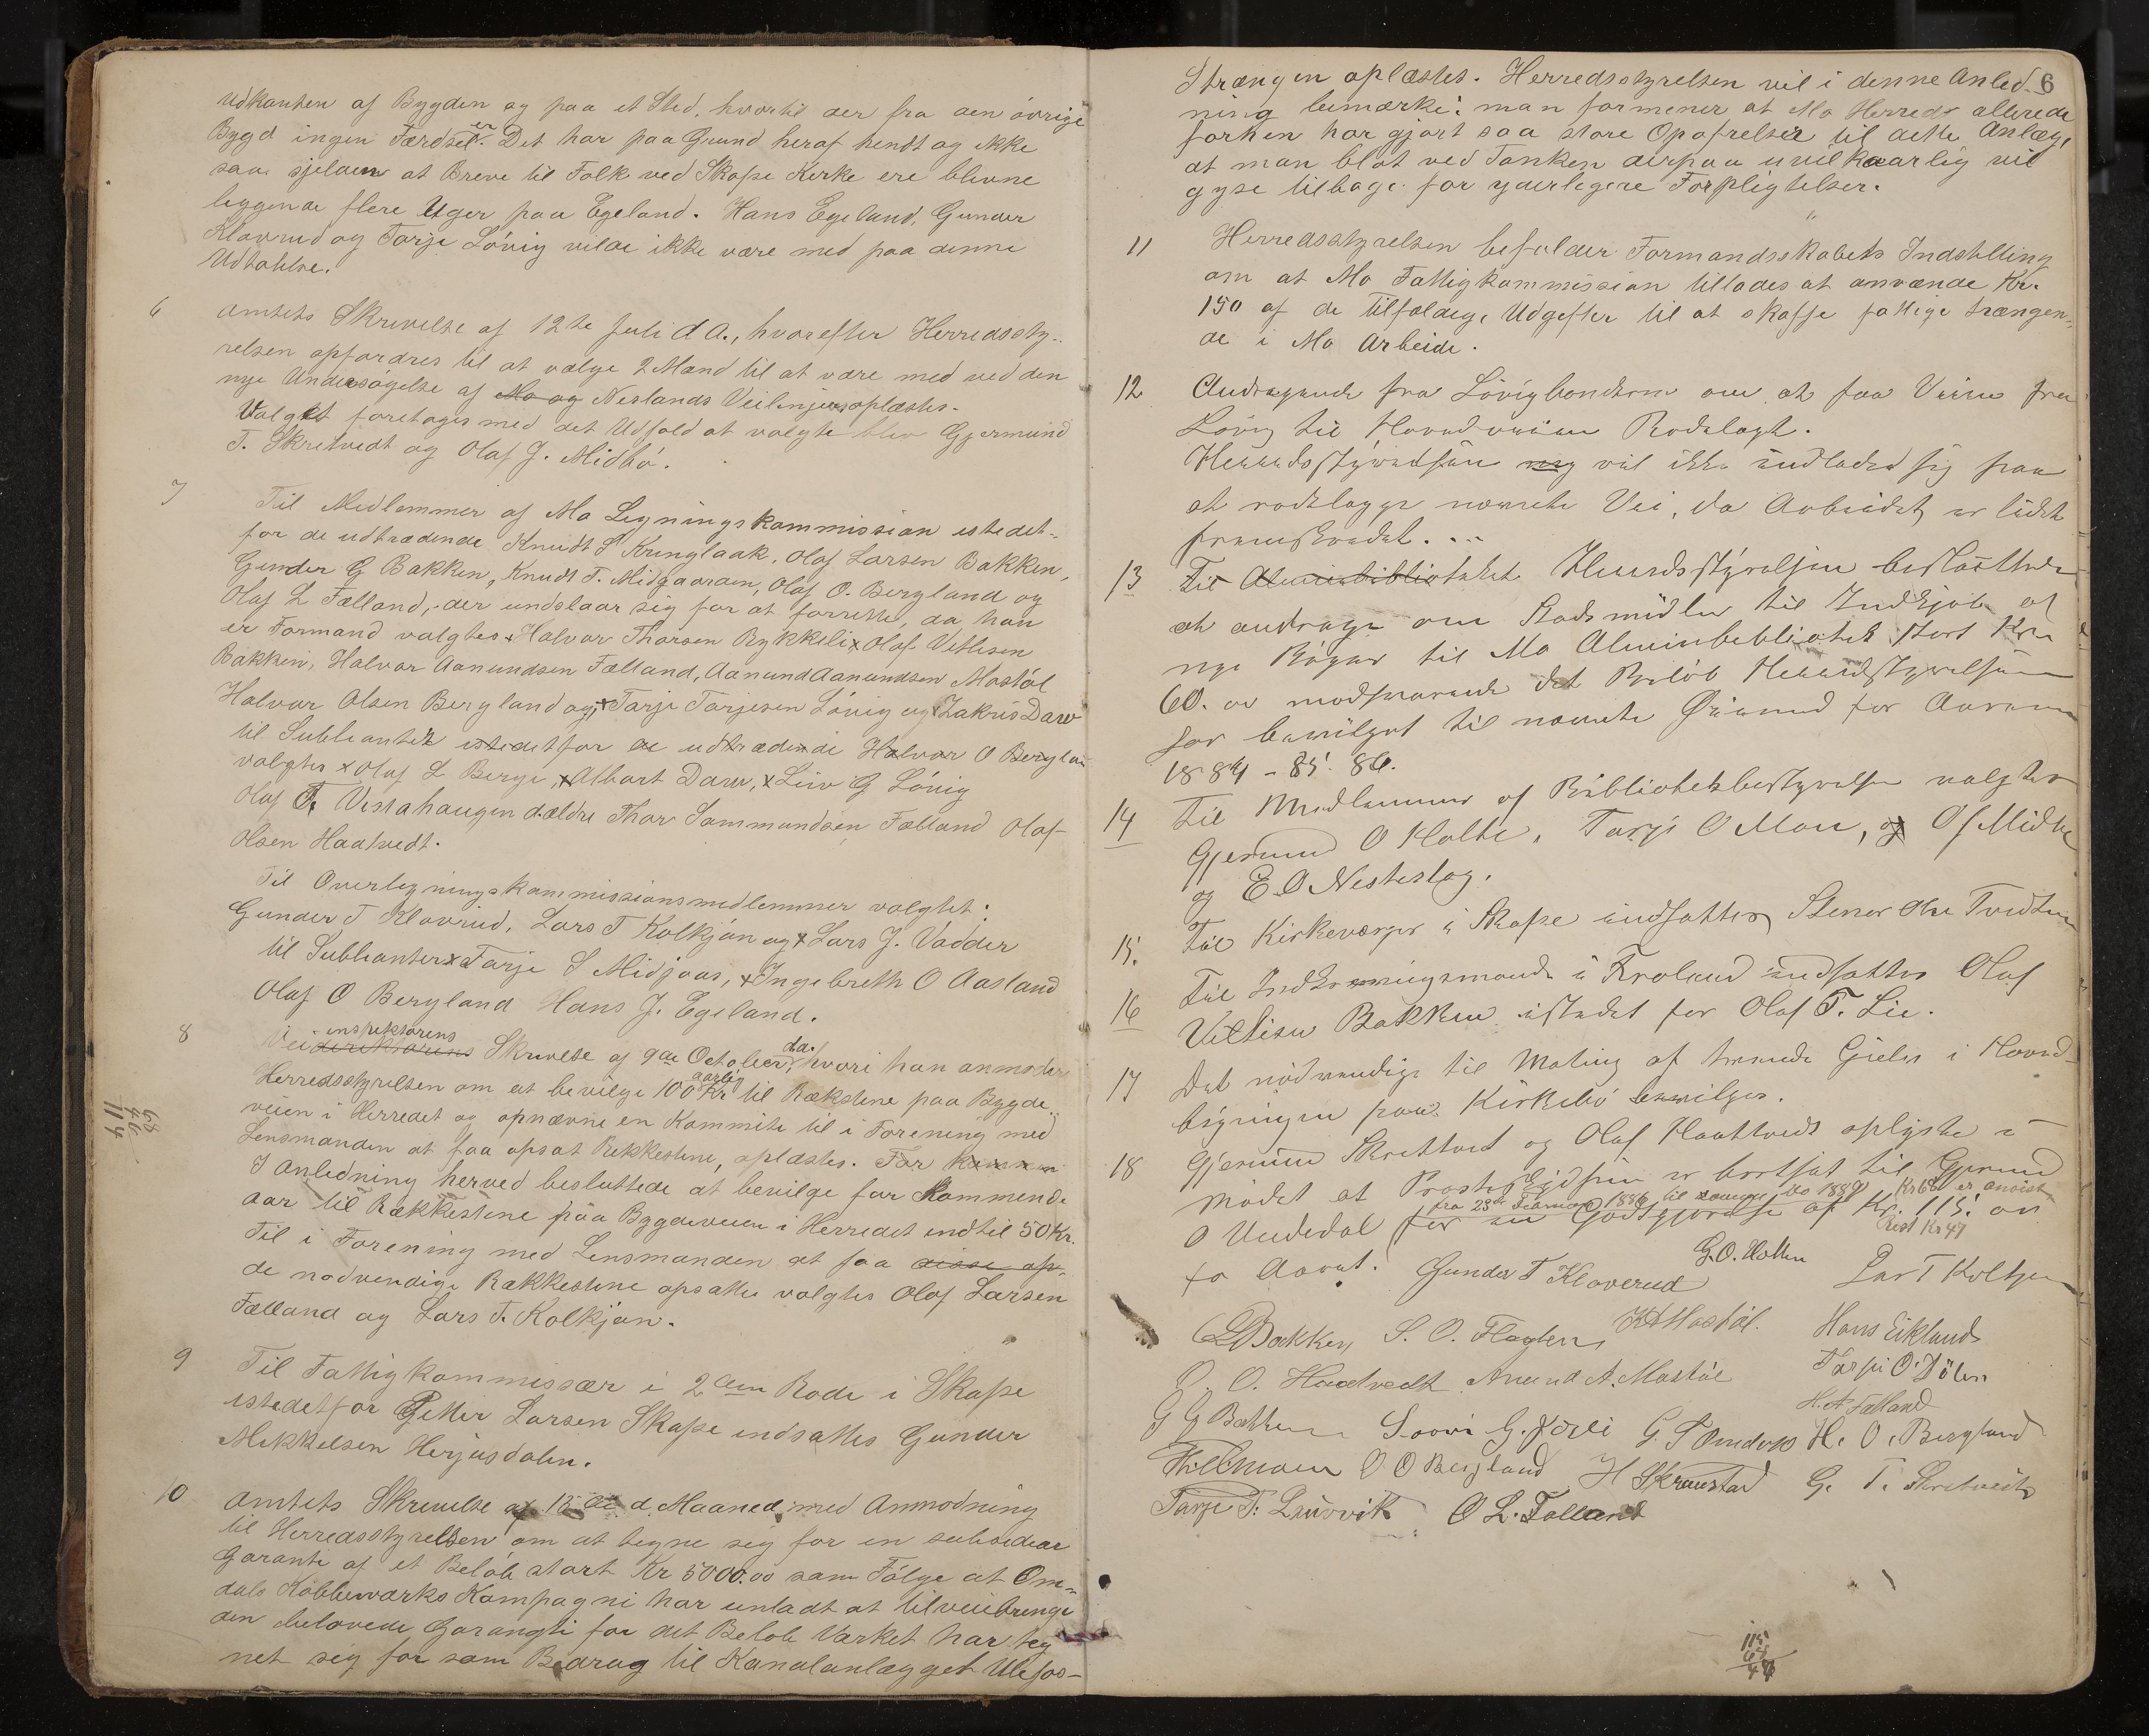 udkanten af Bygden og paa et Sted, hvortil der fra den övrige
Bygd ingen Færdsel er. Det har paa Grund heraf hendt og ikke
saa sjelden at Breve til Folk ved Skafse Kirke ere blevne
leggende flere Uger paa Egeland. Hans Egeland, Gunder
Klovrud og Tarje Lövig vilde ikke være med paa denne
Udtalelse.
6 Amtets Skrivelse af 12te Juli d A., hvorefter Herredssty-
relsen opfordres til at vælge 2 Mænd til at være med ved den
nye Undersögelse af Mo og Neslands Veilinjer oplæstes.
Valget foretoges med det Udfald at valgte blev Gjermund
T. Skretvedt og Olaf J. Midbö.
7 Til Medlemmer af Mo Ligningskommission istedet-
for de udtrædende Knudt S Kringlaak, Olaf Larsen Bakken,
Gunder G Bakken, Knudt T. Midgaarden, Olaf O. Bergland og
Olaf L Fælland, der undslaar sig for at forrette, da han
er Formand valgtes x Halvor Thorsen Rykkeli x Olaf Vetlesen
Bakken, Halvor Aanundsen Fælland, Aanund Aanundsen Mostöl
Halvor Olsen Bergland og x Tarje Tarjesen Lövig og x Zakris Dare
til Subleanter istedetfor de udtrædende Halvor O Bergland
valgtes x Olaf L Berge, x Albart Dare, x Leiv G Lövig
Olaf T. Vestahaugen d.ældre Thor Sammundsen Fælland Olaf
Olsen Haatvedt.
Til Overligningskommissionsmedlemmer valgtet:
Gunder T Klovrud, Lars T Kolkjön og x Lars J. Vadder
til Subleanter x Tarje S Midjaas, x Ingebreth O Aasland
Olaf O Bergland Hans J. Egeland.
8 Veidirektörens inspektörens Skrivelse af 9de October d.a., hvori han anmoder
Herredsstyrelsen om at bevilge 100 Kr aarlig til Rækstene paa Bygde-
veien i Herredet og opnævne en Kommite til i Forening med
Lensmanden at faa opsat Rekkestene, oplæstes. For kommen
I Anledning herved besluttede at bevilge for Kommende
aar til Rækkestene paa Bygdeveien i Herredet indtil 50 Kr.
Til i Forening med Lensmanden at faa disse op-
de nødvendige Rækkestene opsatte valgtes Olaf Larsen
Fælland og Lars T. Kolkjön.
9 Til Fattigkommissær i 2den Rode i Skafse
istedetfor Petter Larsen Skafse indsattes Gunder
Mikkelsen Herjusdalen.
10 Amtets Skrivelse af 12 de d. Maaned, med Anmodning
til Herredsstyrelsen om at tegne sig for en subsidiær
Garanti af et Belöb stort Kr 5000.00 som Fölge at Om-
dals Kobberværks Kompagni har unladt at tilveiebrenge
den belovede Garangti for det Belöb Værket har teg
net sig for som Bedrag til Kanalanlægget Ulefos-
68
46
114
6
Strængen oplæstes. Herredsstyrelsen vil i denne Anled-
ning bemærke: man formener at Mo Herred allerede
forhen har gjort saa store Opofrelser til dette Anlæg,
at man blot ved Tanken derpaa uvilkaarlig vil
gyse tilbage for yderlegere Forpligtelser.
11 Herredsstyrelsen befalder Formandsskabets Indstilling
om at Mo Fattigkommission tillades at anvænde Kr.
150 af de tilfældige Udgefter til at skaffe fattige trængen-
de i Mo Arbeide.
12 Andragende fra Lövigbönderne om at faa Veien fra
Lövig til Hovedveien Rodelagt.
Herredsstyrelsen vil ikke indlade sig paa
at rodelægge nævnte Vei, da Arbeidet er lidet
fremskredet.
13 Til Almuebibliotheket Herredsstyrelsen besluttede
at andrage om Stadsmidler til Indkjöb af
nye Böger til Mo Almuebibliotek stort Kr
60. som modsvarende det Belöb Herredsstyrelsen
har bevilget til nævnte Öiemed for Aarene
1884 - 85. 86.
14 Til Medlemmer af Bibliotekbestyrelse valgtes
Gjermund O Holte, Tarje O Moen, og O J Midbö
og E O Nesteslog.
15. Til Kirkeverger i Skafse indsattes Stener Olsen Tveiten
16 Til Indkrævningsmand i Froland indsattes Olaf
Vetlisen Bakken istedet for Olaf T. Lie.
17 Det nödvendige til Maling af tvende Gulve i Hoved-
bygningen paa Kirkebö bevilges.
18 Gjermund Skretvedt og Olaf Haatvedt oplyste i
mödet at Prosteskydsen er bortsat til Gjermund
O Undedal for en Godtgjörelse af Kr. 115. om
fra 23de Februar 1886 til samme Do 1889
Kr 68 er anvist
Rest Kr 47
for Aaret.
Gunder T Kloverud G.O. Holten Lars T Kolkjen
Bakken S. O. Flaaten K H Mostöl. Hans Eikland
O. O. Haatvedt Anund A. Mostöl Tarje O. Dölen
H. A Fælland
G G Bakken G. T Omdal H. O. Bergland
O O Bergland H Skraustad G. T. Skretvedt
Tarje T. Leirvik O L. Folland
115
68
47